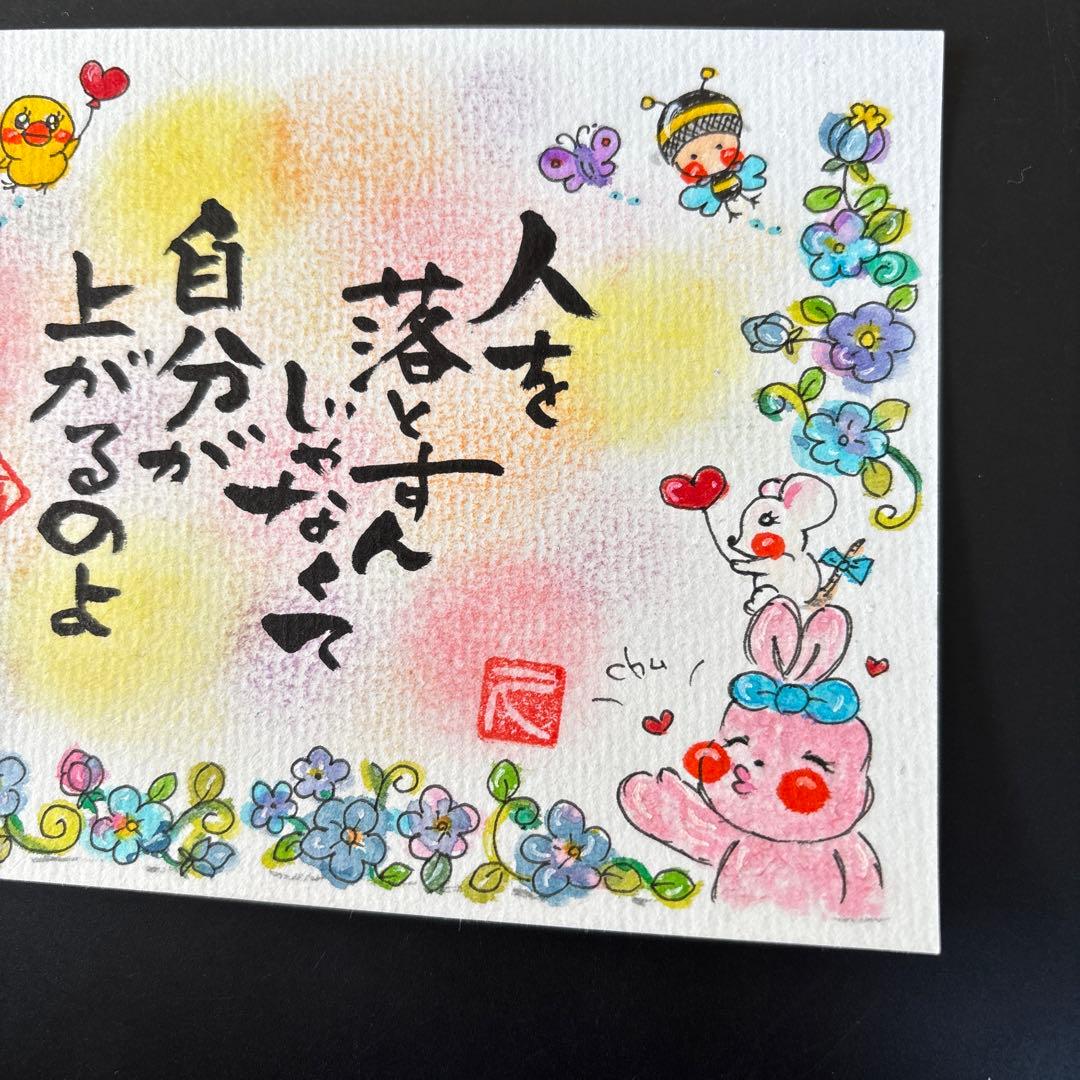 人を
落とすん
じゃなくて
自分が
上がるのよ
chu